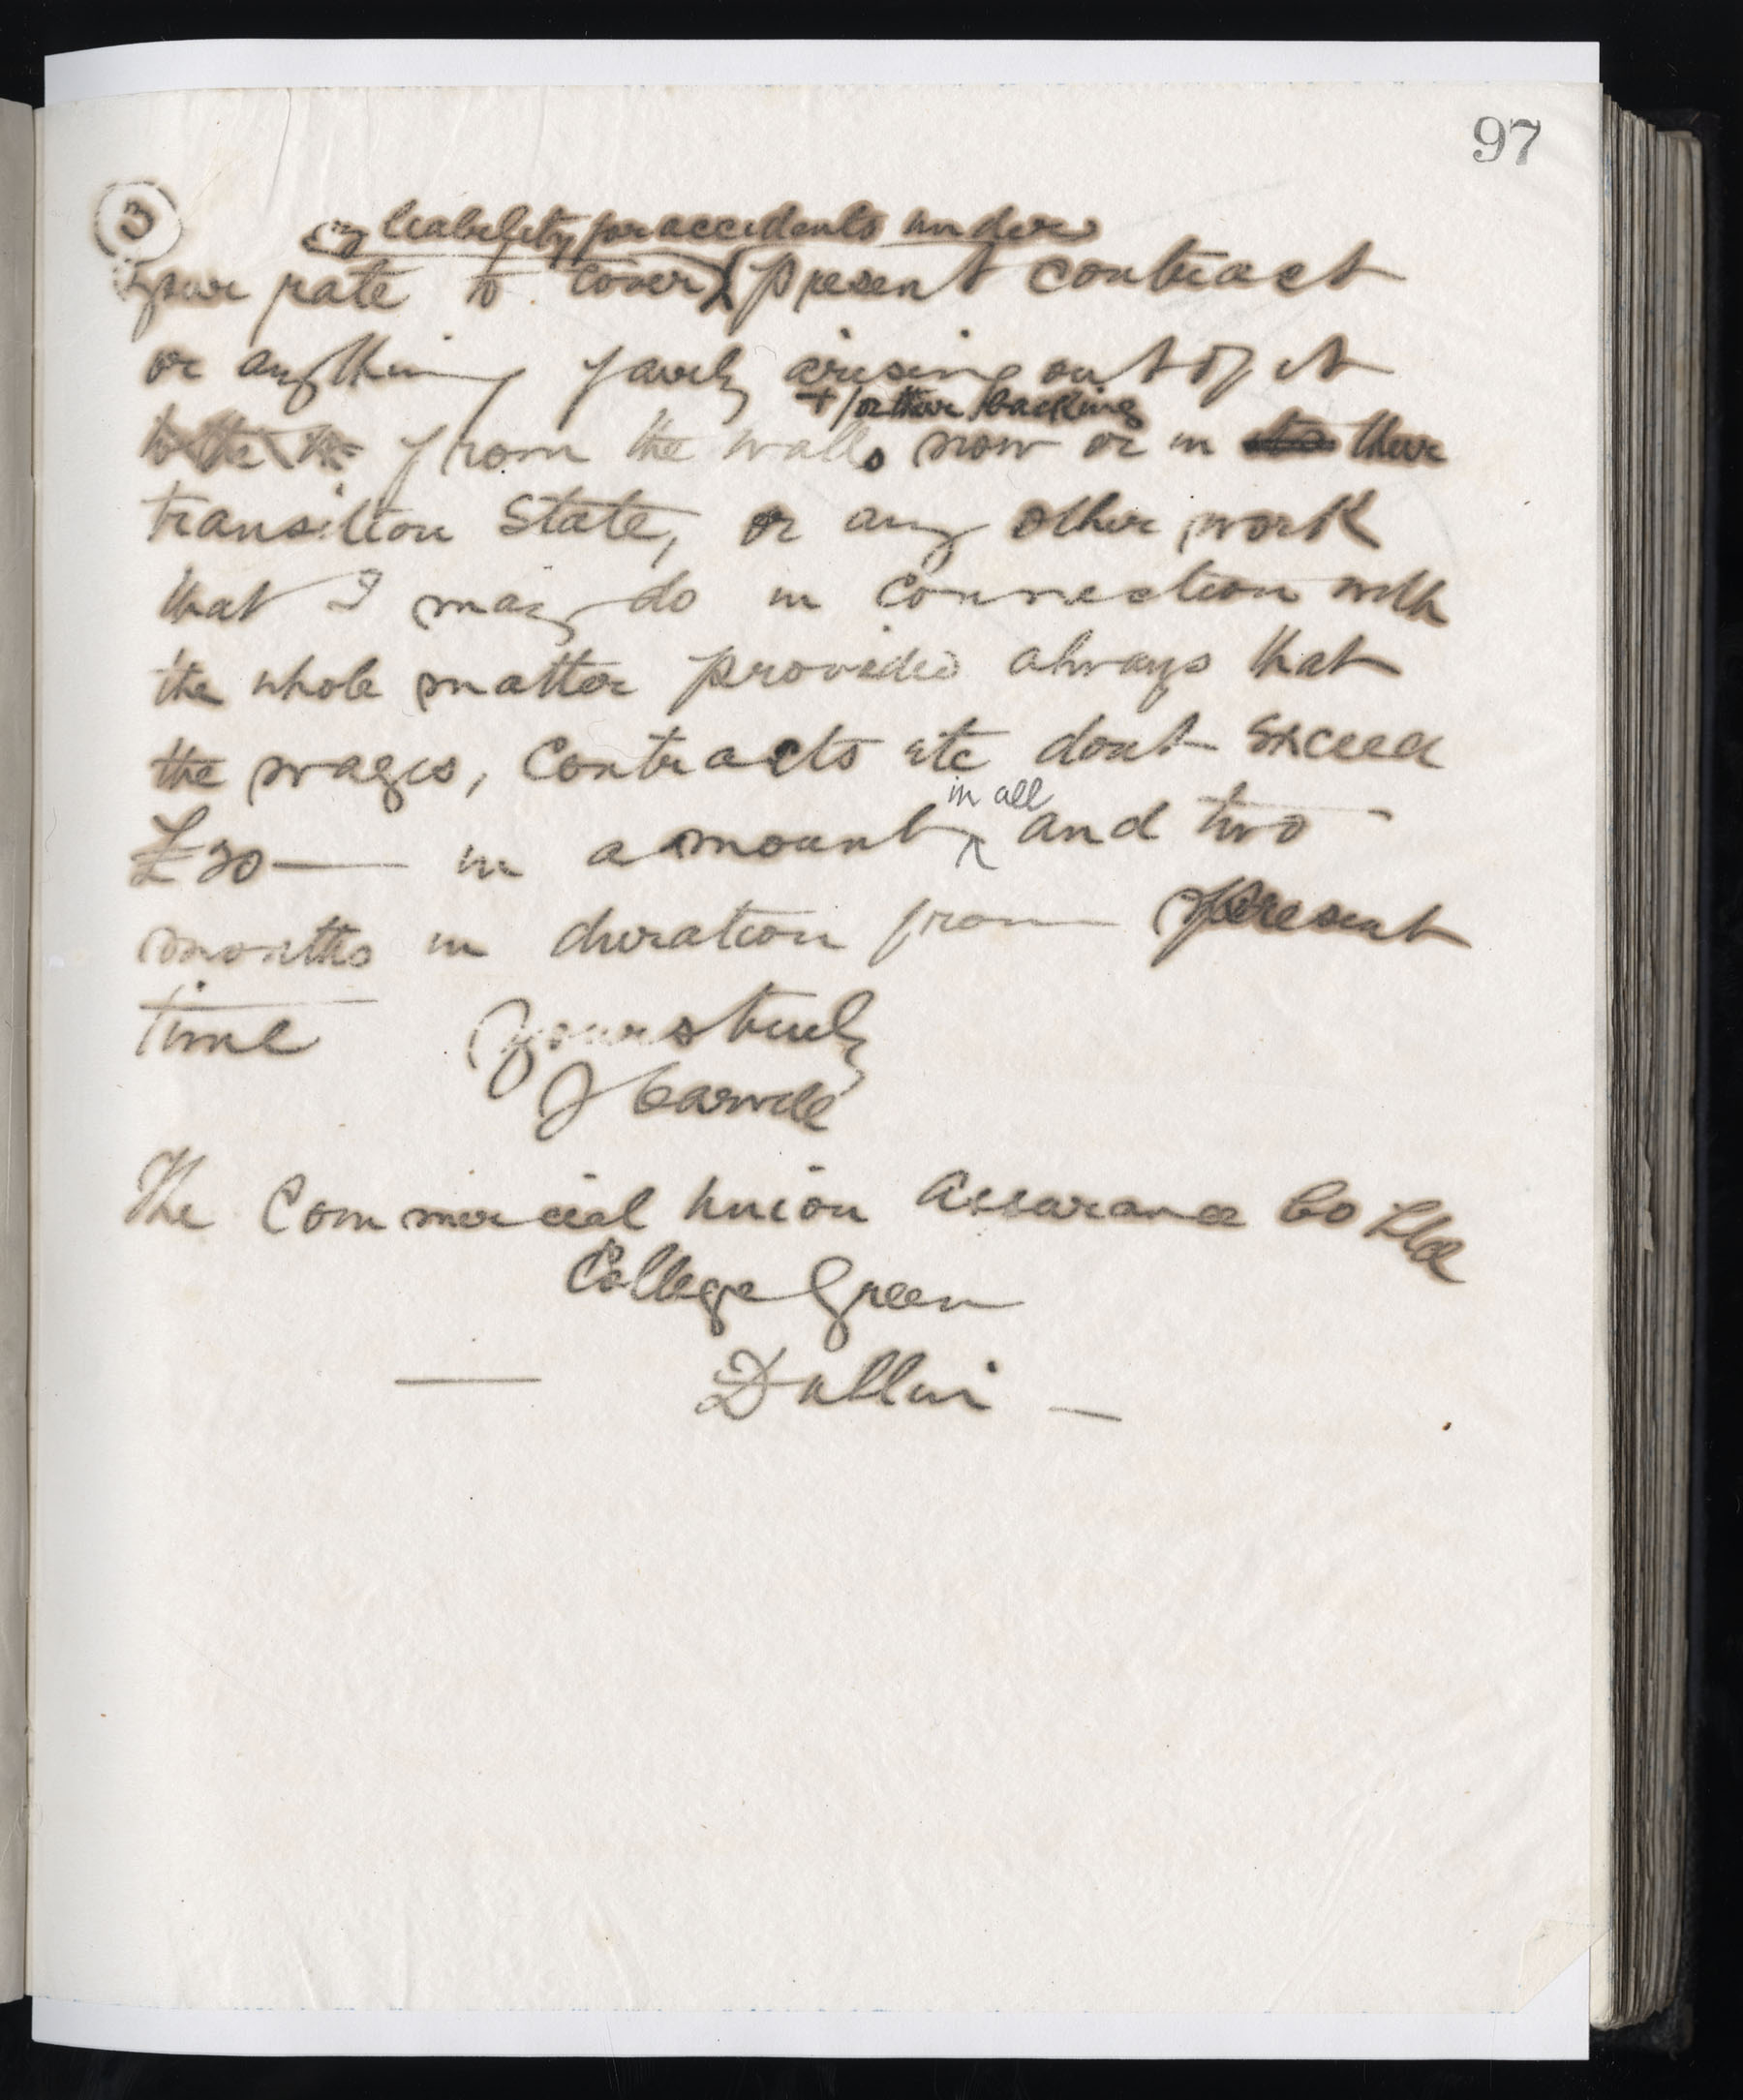 97
3
my liability for accidents under
your rate to cover present contract
or anything fairly arising out of it
+/or their backing
to the from the walls now or in their
transition state, or any other work
that I may do in connection with
the whole matter provided always that
the wages, contracts etc dont exceed
in all
£30 — in amount and two
months in duration from present
time Yours truly
The Commercial Union Assurance Co Ltd
College Green
— Dublin —